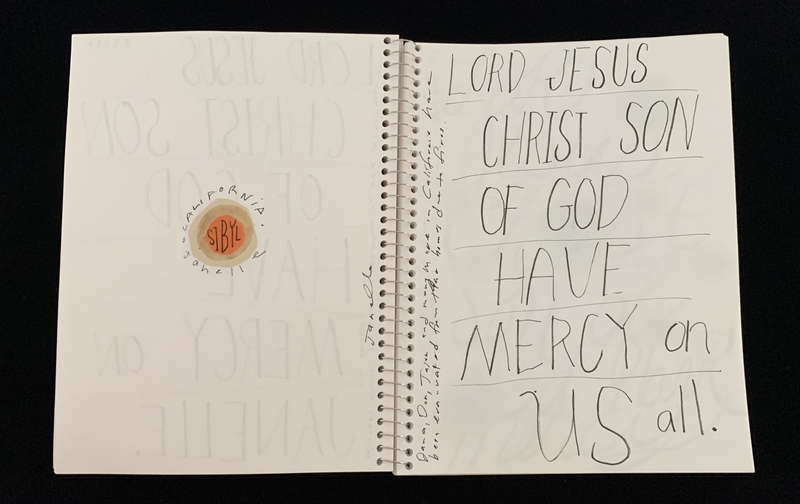 CALIFORNIA.
SIBYL
Janelle
Janelle
Dana, Don, Tajar and many more in California have
been evacuated from their homes due to fires.
LORD JESUS
CHRIST SON
OF GOD
HAVE
MERCY on
US all.